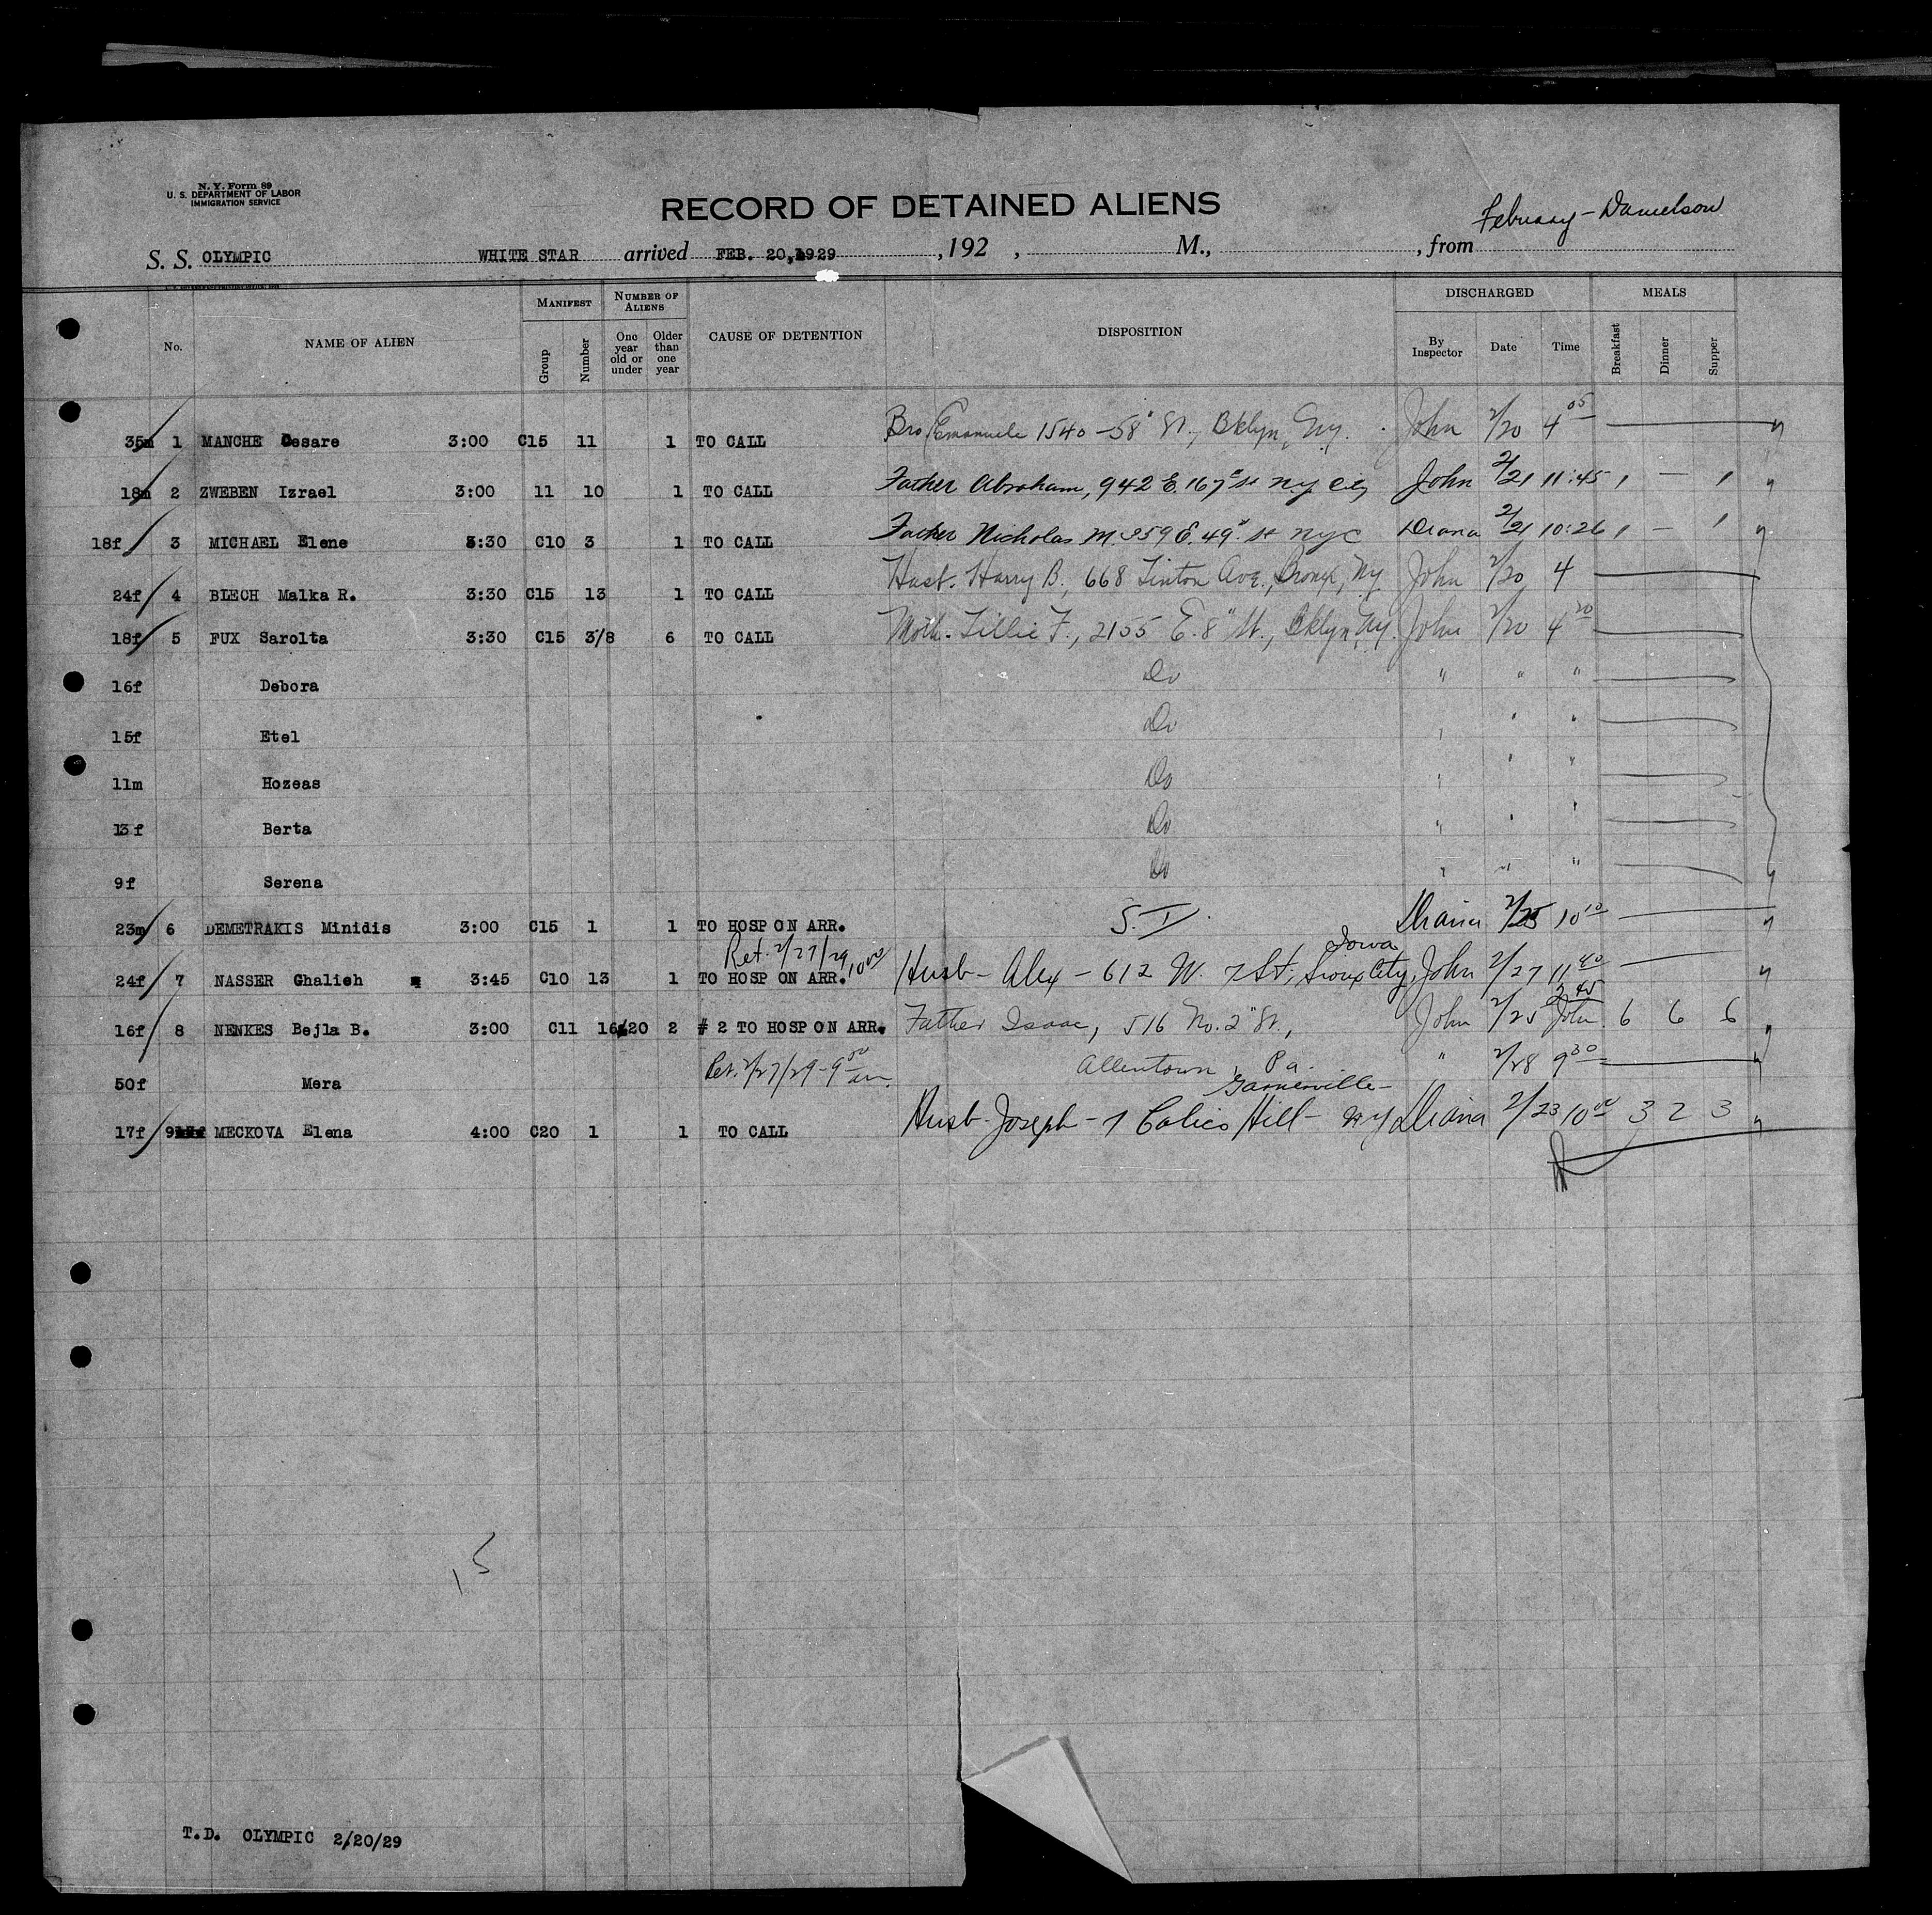 N. Y. Form 89
U. S. DEPARTMENT OF LABOR
IMMIGRATION SERVICE
RECORD OF DETAINED ALIENS
February - Danielson
S. S. OLYMPIC WHITE STAR arrived FEB. 20, 1929 , 192 , M., , from
No. NAME OF ALIEN MANIFEST Group Number NUMBER OF ALIENS One year old or under Older than one year CAUSE OF DETENTION DISPOSITION DISCHARGED By Inspector Date Time MEALS Breakfast Dinner Supper
35m 1 MANCHE Cesare 3:00 C15 11 1 TO CALL Bro Emanuele 1540 - 58" St., Bklyn, Ny. John 2/20 4 05
18m 2 ZWEBEN Izrael 3:00 11 10 1 TO CALL Father Abraham, 942 E. 167" St NY City John 2/21 11:45 1 — 1
18f 3 MICHAEL Elene 3:30 C10 3 1 TO CALL Father Nicholas M. 359 E. 49" St NYC Diana 2/21 10:26 1 — 1
24f 4 BLECH Malka R. 3:30 C15 13 1 TO CALL Husb. Harry B., 668 Tinton Ave., Bronx, Ny John 2/20 4
18f 5 FUX Sarolta 3:30 C15 3/8 6 TO CALL Moth. Tillie F., 2155 E. 8" St., Bklyn, Ny. John 2/20 4 20
16f Debora Do " " "
15f Etel Do " " "
11m Hozeas Do " " "
13f Berta Do " " "
9f Serena Do " " "
23m 6 DEMETRAKIS Minidis 3:00 C15 1 1 TO HOSP ON ARR. S.I. Diana 2/25 10 10
Ret. 2/27/29 10 00 Iowa
24f 7 NASSER Ghalieh 3:45 C10 13 1 TO HOSP ON ARR. Husb - Alex - 612 W. 7 St, Sioux City, John 2/27 11 40
16f 8 NENKES Bejla B. 3:00 C11 16 20 2 # 2 TO HOSP ON ARR. Father Isaac, 516 No. 2" St., John 2/25 2 45 John 6 6 6
50f Mera Ret. 2/27/29 - 9 00 am. Allentown, Pa. " 2/28 9 30
Garnerville -
17f 9 MECKOVA Elena 4:00 C20 1 1 TO CALL Husb - Joseph - 7 Calico Hill - NY Diana 2/23 10 00 3 2 3
15
T.D. OLYMPIC 2/20/29